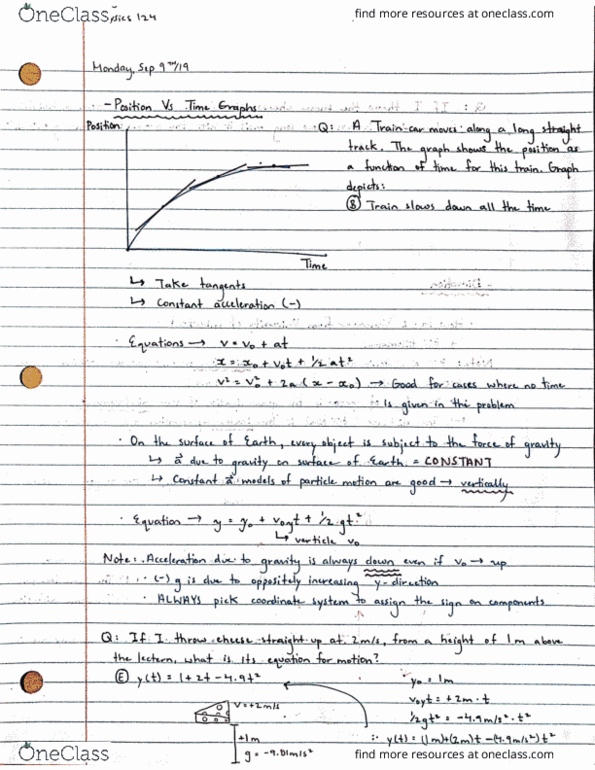 OneClass
find more resources at oneclass.com
Physics 124
Monday, Sep 9th/19
- Position Vs Time Graphs
Position
Time
Q: A Train car moves along a long straight
track. The graph shows the position as
a function of time for this train. Graph
depicts:
(B) Train slows down all the time
↳ Take tangents
↳ Constant acceleration (-)
· Equations → v = v₀ + at
x = x₀ + v₀t + 1/2 at²
v² = v₀² + 2a (x - x₀) → Good for cases where no time
is given in the problem
· On the surface of Earth, every object is subject to the force of gravity
↳ a⃗ due to gravity on surface of Earth = CONSTANT
↳ Constant a⃗ models of particle motion are good → vertically
· Equation → y = y₀ + v₀yt + 1/2 gt²
↳ verticle v₀
Note: · Acceleration due to gravity is always down even if v₀ → up
· (-) g is due to oppositely increasing y-direction
· ALWAYS pick coordinate system to assign the sign on components
Q: If I throw cheese straight up at 2m/s, from a height of 1m above
the lectern, what is its equation for motion?
(E) y(t) = 1 + 2t - 4.9t²
y₀ = 1m
v₀yt = +2m · t
1/2gt² = -4.9m/s² · t²
∴ y(t) = (1m)+(2m)t -(4.9m/s²)t²
v = +2m/s
+1m
g = -9.81m/s²
OneClass
find more resources at oneclass.com